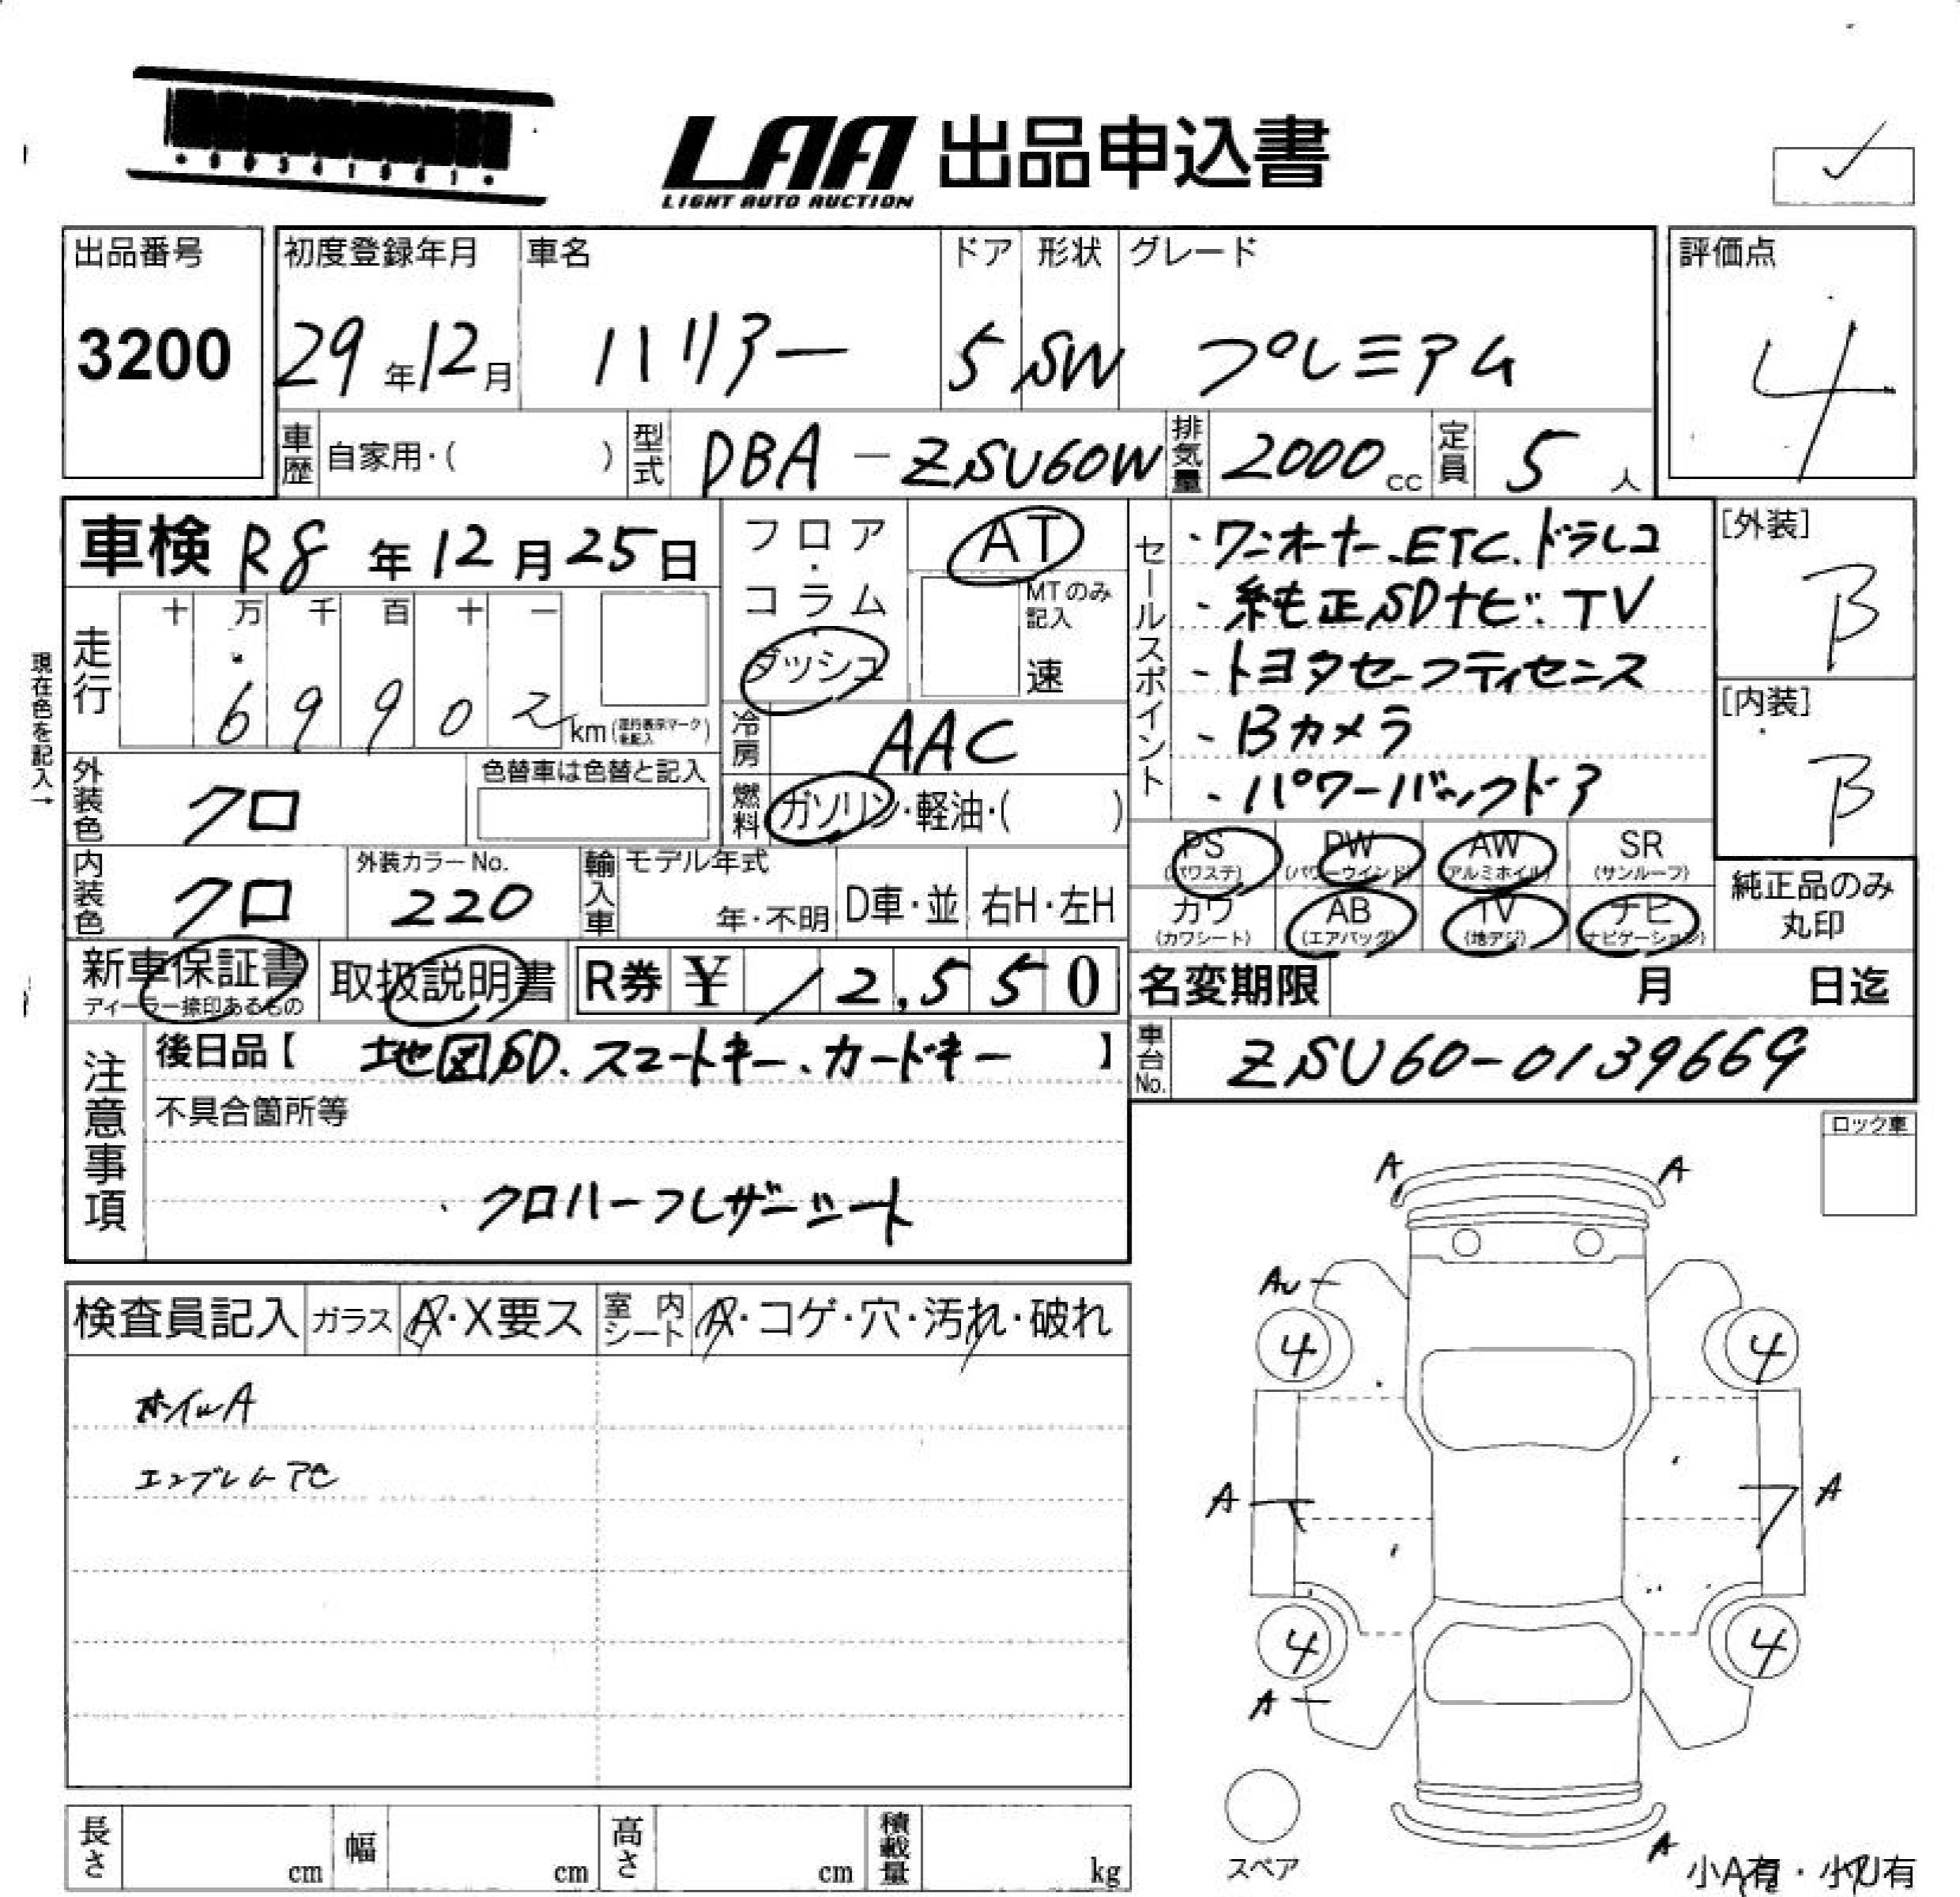 LAA 出品申込書
LIGHT AUTO AUCTION
出品番号
3200
初度登録年月 車名 ドア 形状 グレード
29年12月 ハリアー 5 SW プレミアム
評価点
4
車歴 自家用・( ) 型式 DBA-ZSU60W 排気量 2000cc 定員 5人
車検 R8年12月25日
フロア・コラム
ダッシュ
AT
MTのみ記入
速
セールスポイント
・ワンオーナー、ETC.ドラレコ
・純正SDナビ.TV
・トヨタセーフティセンス
・Bカメラ
・パワーバックドア
[外装]
B
[内装]
B
現在色を記入→
走行
十 万 千 百 十 一
69902 km
冷房 AAC
外装色 クロ
色替車は色替と記入
燃料 ガソリン・軽油・( )
PS PW AW SR
(パワステ) (パワーウインド) (アルミホイル) (サンルーフ)
カワ AB TV ナビ
(カワシート) (エアバッグ) (地デジ) (ナビゲーション)
純正品のみ
丸印
内装色 クロ
外装カラーNo.
220
輸入車 モデル年式
年・不明 D車・並 右H・左H
新車保証書
ディーラー捺印あるもの
取扱説明書
R券 ¥12,550
名変期限 月 日迄
注意事項
後日品【 地図SD.スマートキー、カードキー 】
車台No. ZSU60-0139669
不具合箇所等
・クロハーフレザーシート
ロック車
検査員記入 ガラス A・X要ス 室内シート A・コゲ・穴・汚れ・破れ
ホイルA
エンブレム
A A
4 4
A A
4 4
A
スペア
A
小A有・小U有
長さ cm 幅 cm 高さ cm 積載量 kg